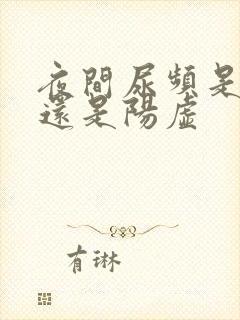 夜間尿頻是
還是陽虛
有琳